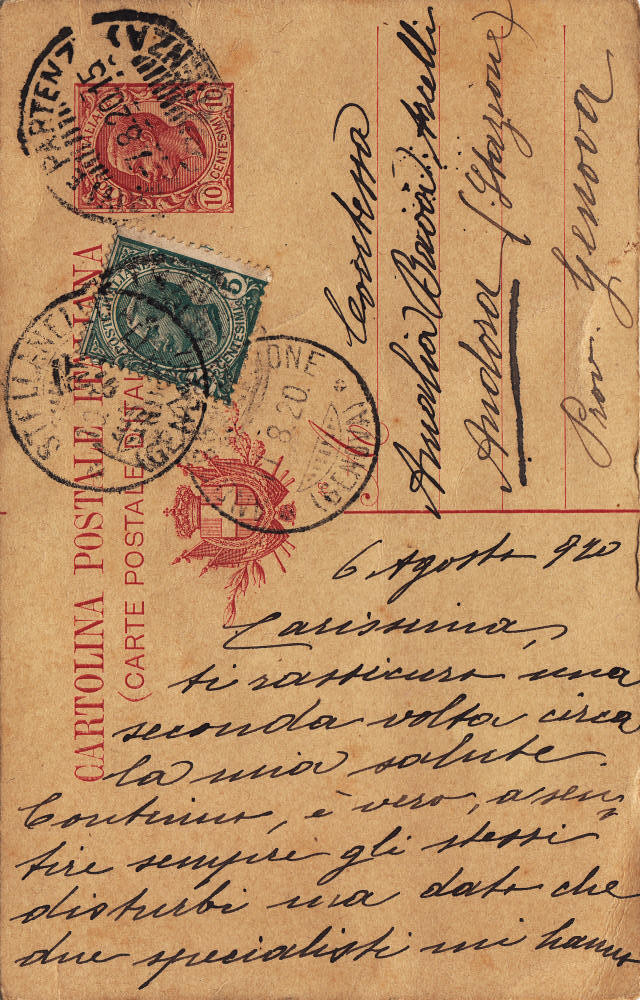 CARTOLINA POSTALE ITALIANA
(CARTE POSTALE D'ITALIE)
10 CENTESIMI 10
POSTE ITALIANE
CENTESIMI 5
8.20.15
STELLANELLO
8.20
(GENOVA)
Contessa
Amalia
Andora (Stazione)
Prov. Genova
6 Agosto 920
Carissima,
ti rassicuro una
seconda volta circa
la mia salute.
Continuo, è vero, a sen-
tire sempre gli stessi
disturbi ma dato che
due specialisti mi hanno